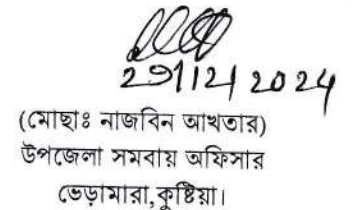 29/12/2024
(মোছাঃ নাজবিন আখতার)
উপজেলা সমবায় অফিসার
ভেড়ামারা,কুষ্টিয়া।